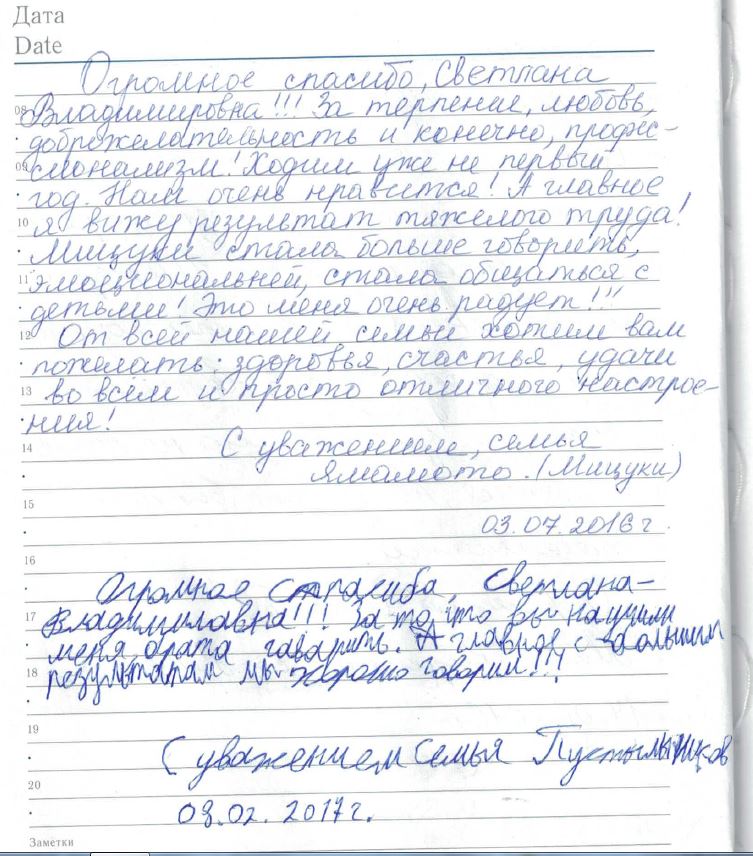 Дата
Date
Огромное спасибо, Светлана
08 Владимировна!!! За терпение, любовь,
доброжелательность и конечно, профес-
09 сионализм! Ходим уже не первый
год. Нам очень нравится! А главное
10 я вижу результат тяжелого труда!
Мицуки стала больше говорить,
11 эмоциональней, стала общаться с
детьми! Это меня очень радует!!!
12 От всей нашей семьи хотим вам
пожелать: здоровья, счастья, удачи
13 во всем и просто отличного настрое-
ния!
14 С уважением, семья
Ямамото. (Мицуки)
15
03.07.2016 г.
16
Огромное спасиба, Светлана-
17 Владимилавна!!! За то что вы научили
меня, брата гаварить. А главное, с большим
18 результатам мы хорошо говорим!!!
19
С уважением семья Пустыльников
20
08.02.2017 г.
Заметки